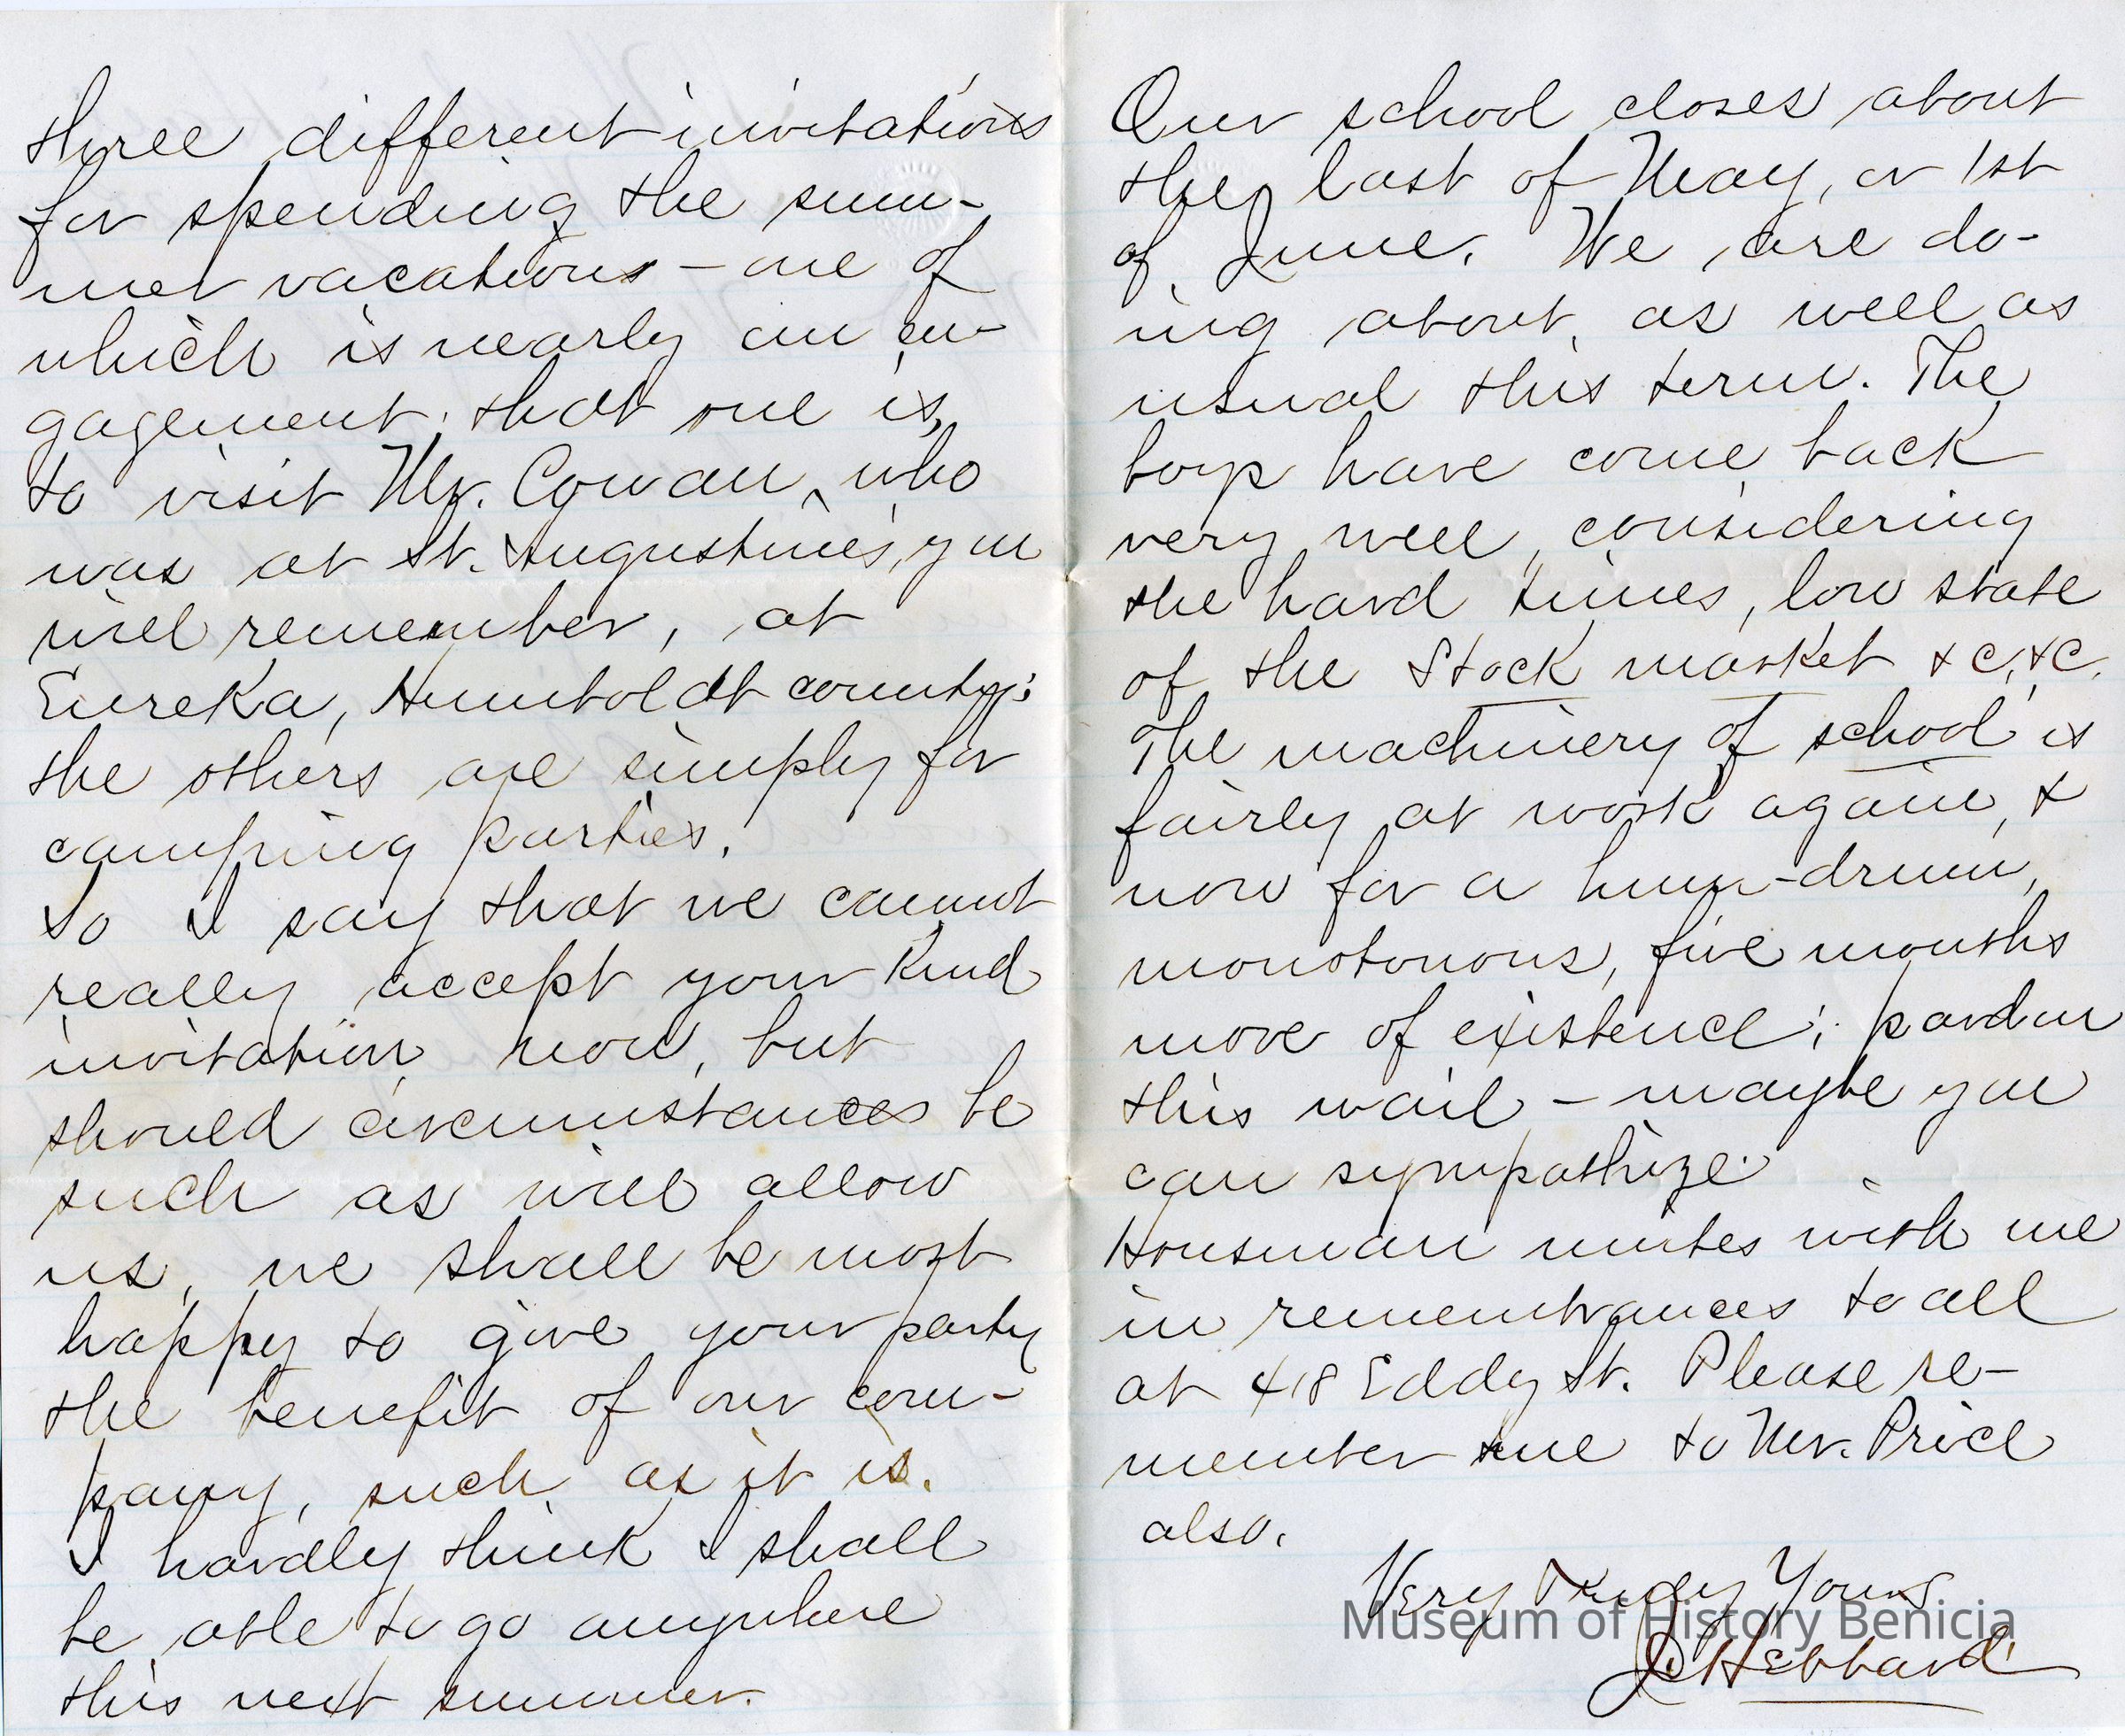 three different invitations
for spending the sum-
mer vacations – one of
which is nearly an en-
gagement; that one is,
to visit Mr. Cowan, who
was at St. Augustine's, you
will remember, at
Eureka, Humboldt county;
the others are simply for
camping parties.
So I say that we cannot
really accept your kind
invitation now, but
should circumstances be
such as will allow
us, we shall be most
happy to give your party
the benefit of our com-
pany, such as it is.
I hardly think I shall
be able to go anywhere
this next summer.
Our school closes about
the last of May, or 1st
of June. We are do-
ing about as well as
usual this term. The
boys have come back
very well, considering
the hard times, low state
of the Stock market &c, &c.
The machinery of school is
fairly at work again, &
now for a hum-drum,
monotonous, five months
more of existence; pardon
this wail – maybe you
can sympathize.
Housman unites with me
in remembrances to all
at 418 Eddy St. Please re-
member me to Mr. Price
also.
Very Truly Yours
J. Hebbard
Museum of History Benicia